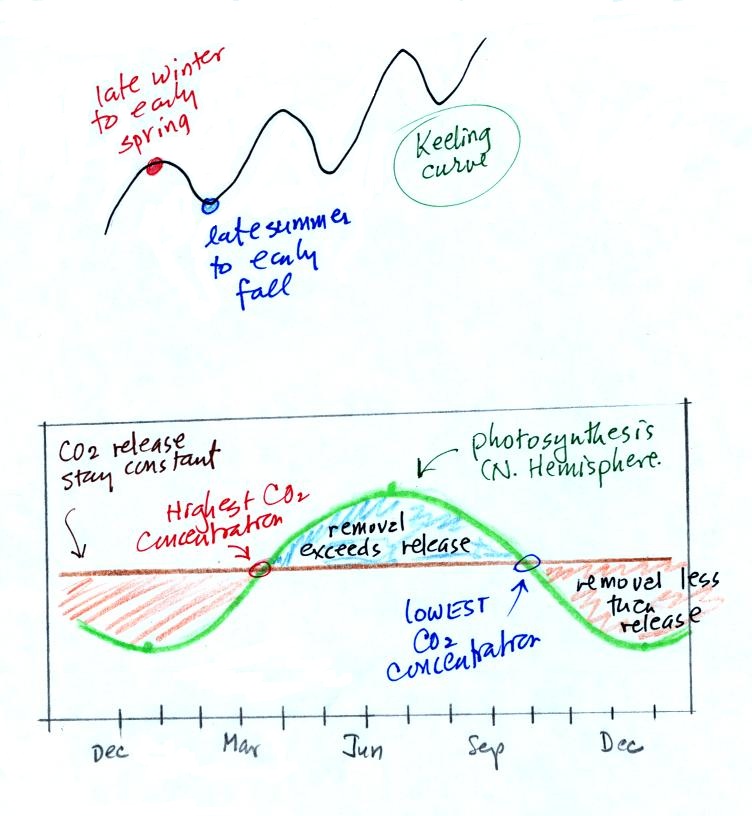 late winter
to early
spring
Keeling
curve
late summer
to early
fall
CO2 release
stay constant
photosynthesis
(N. Hemisphere.
Highest CO2
concentration
removal
exceeds release
removal less
than
release
LOWEST
CO2
concentration
Dec
Mar
Jun
Sep
Dec